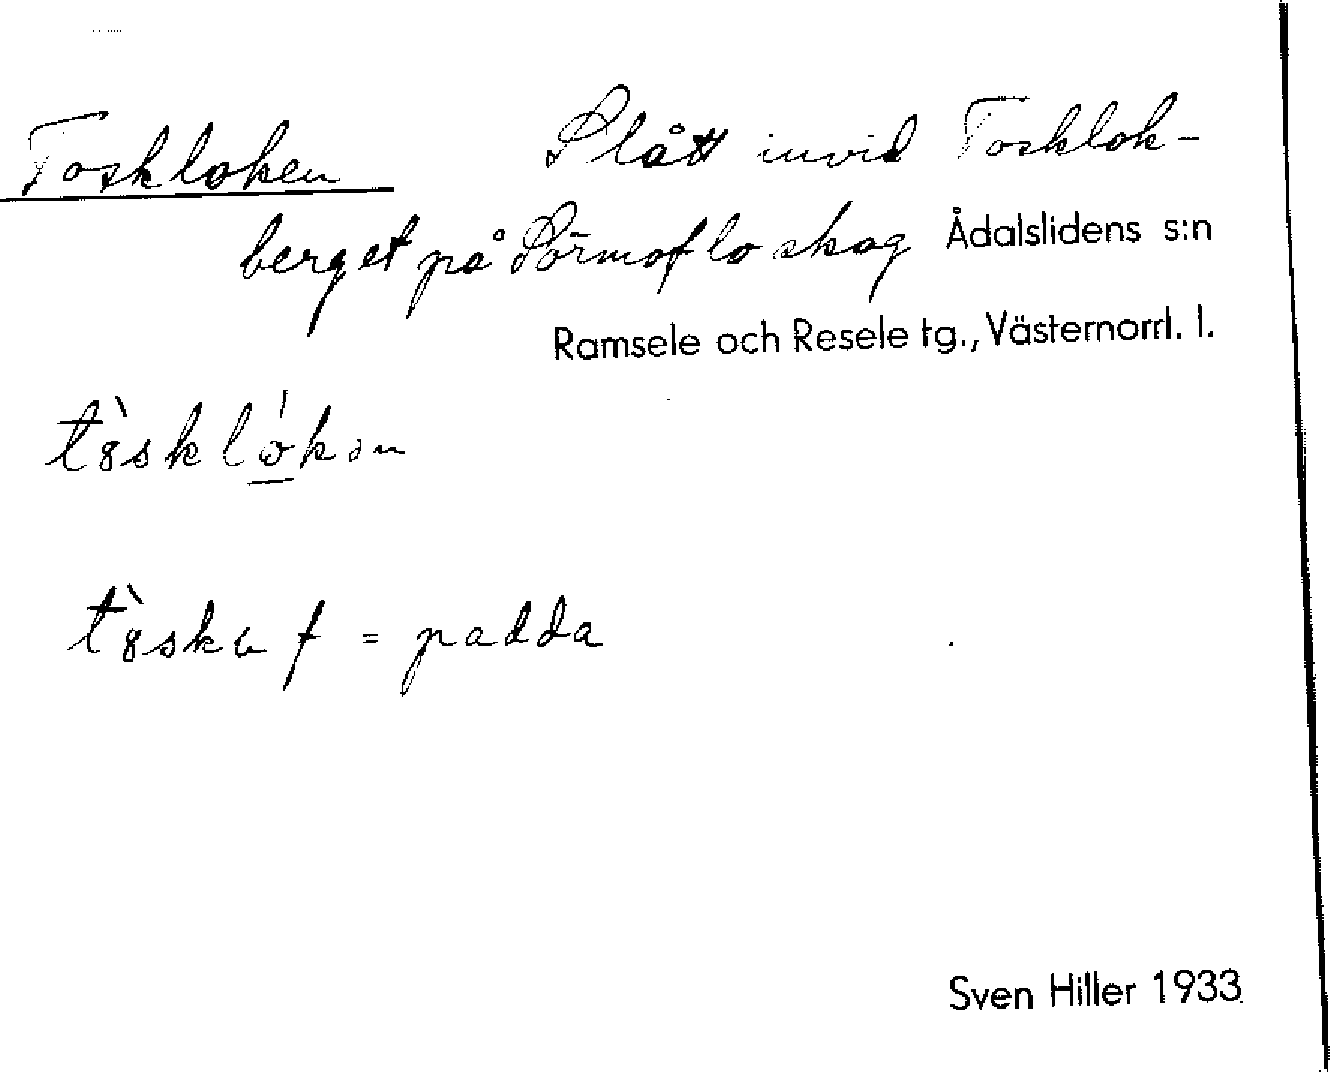 Toskloken Slått invid Tosklok-
berget på Sörmoflo skog Ådalslidens s:n
Ramsele och Resele tg., Västernorrl. l.
tòsklókən
tòska f = padda
Sven Hiller 1933